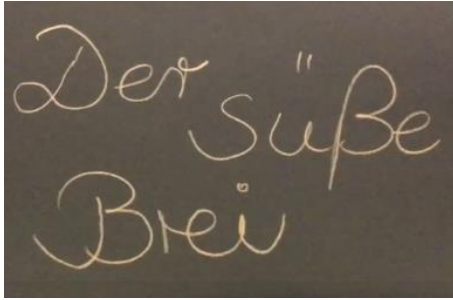 Der
süße
Brei